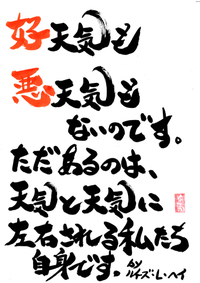 好天気も
悪天気も
ないのです。
ただあるのは、
天気と天気に
左右される私たち
自身です。
ルイーズ・L・ヘイ